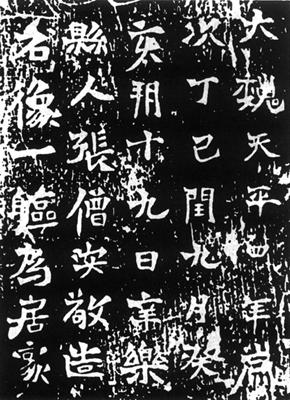 大魏天平四年歲
次丁巳閏九月癸
亥朔十九日辛樂
縣人張僧安敬造
石像一軀為居家